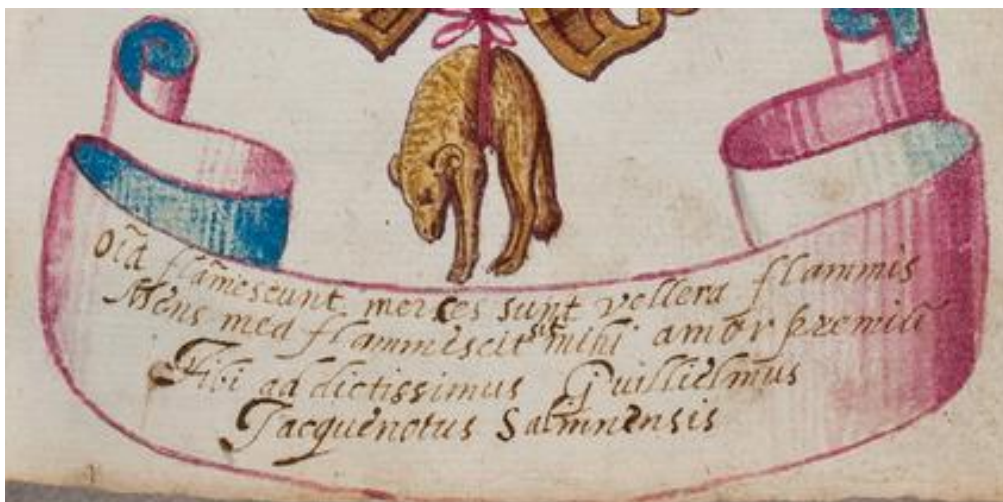 Oīa flāmescunt merces sunt vellera flammis
Mens mea flammescit sit mihi amor premiū
Tibi addictissimus Guillielmus
Jacquenotus Salinnensis